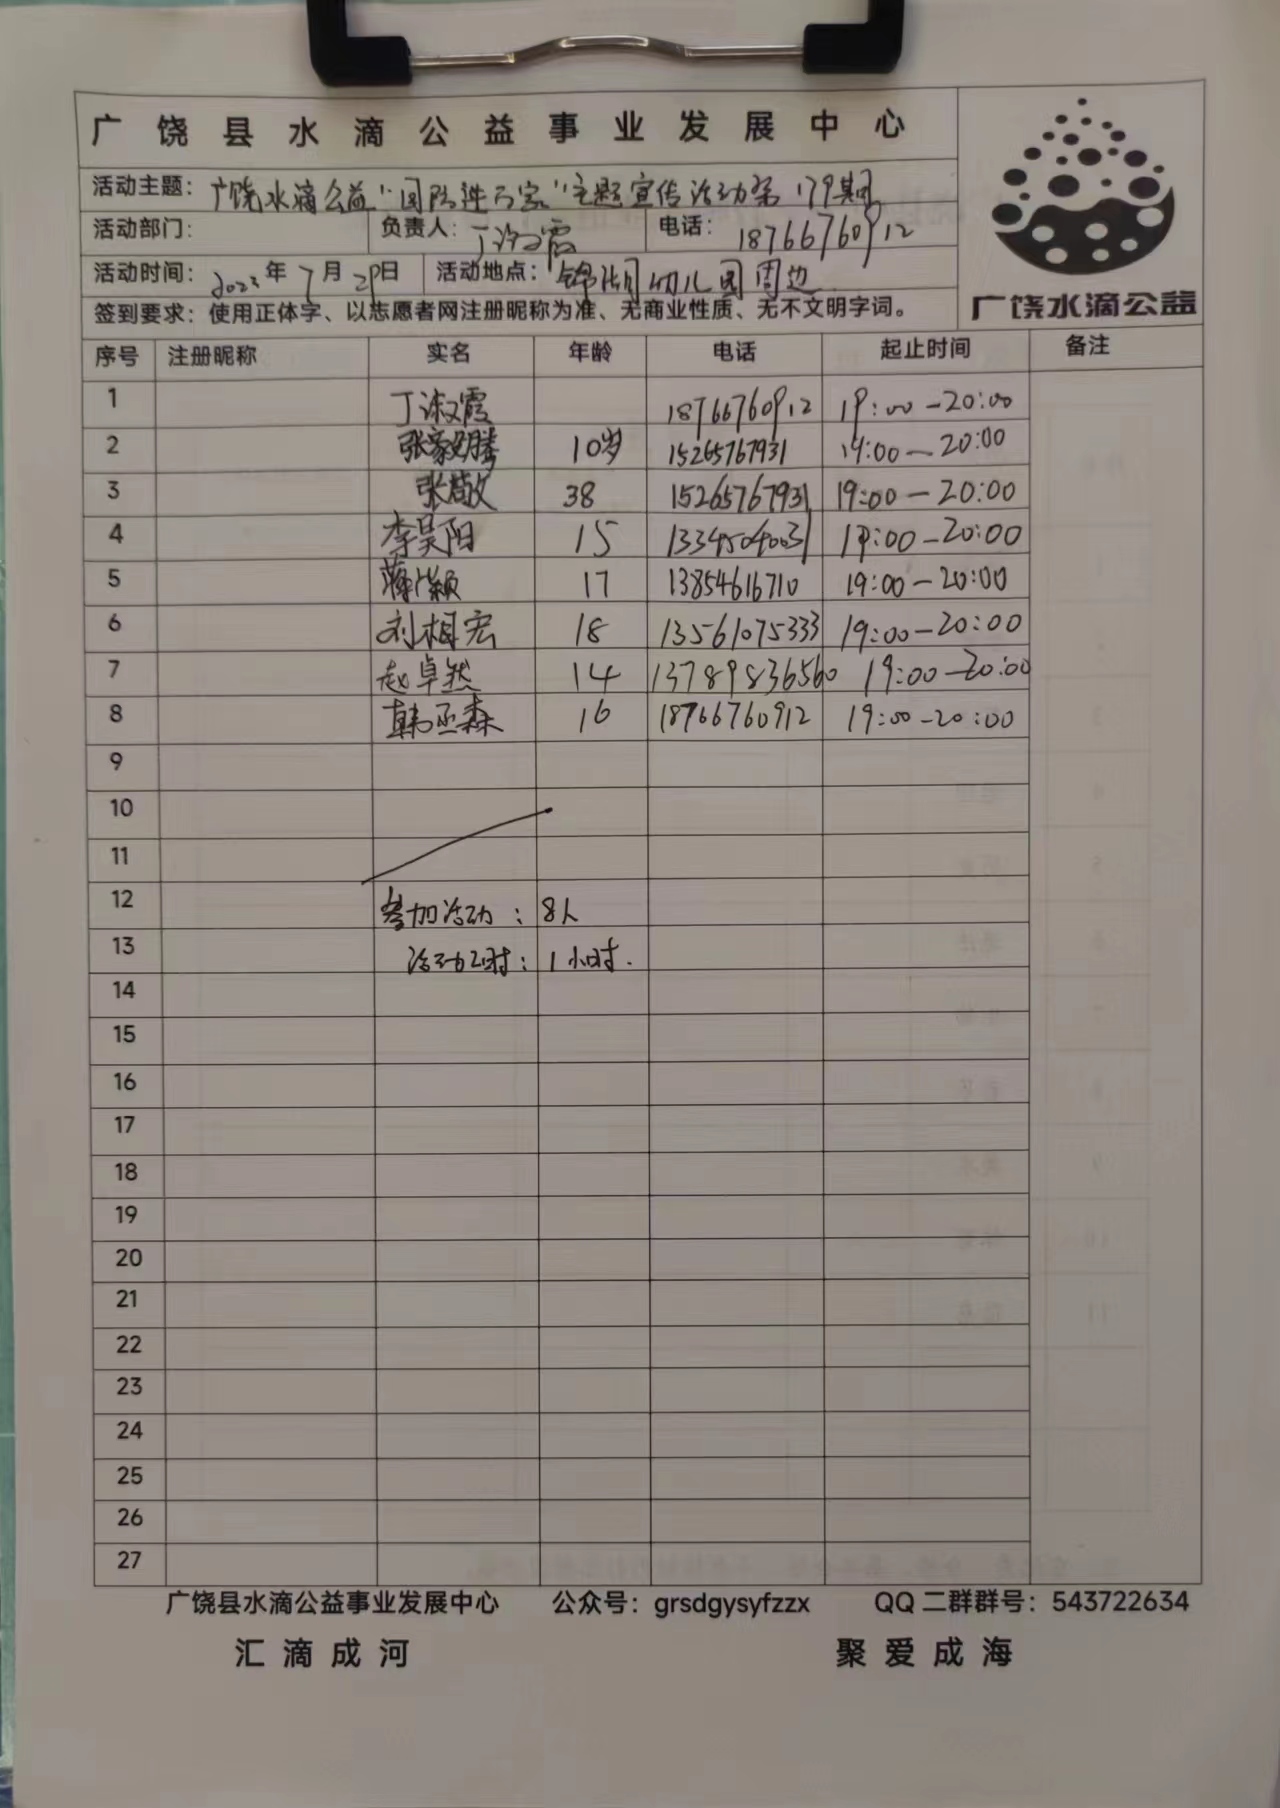 广饶县水滴公益事业发展中心
活动主题：广饶水滴公益"国防进万家"主题宣传活动第179期
活动部门： 负责人：丁淑霞 电话：18766760912
活动时间：2023年7月29日 活动地点：锦湖幼儿园周边
签到要求：使用正体字、以志愿者网注册昵称为准、无商业性质、无不文明字词。
广饶水滴公益
序号 注册昵称 实名 年龄 电话 起止时间 备注
1 丁淑霞 18766760912 19:00-20:00
2 张毅腾 10岁 15265767931 19:00-20:00
3 张敬 38 15265767931 19:00-20:00
4 李昊阳 15 13345040031 19:00-20:00
5 蒋颖 17 13854616710 19:00-20:00
6 刘相宏 18 13561075333 19:00-20:00
7 赵卓然 14 13789836560 19:00-20:00
8 韩丞森 16 18766760912 19:00-20:00
9
10
11
12 参加活动：8人
13 活动时：1小时.
14
15
16
17
18
19
20
21
22
23
24
25
26
27
广饶县水滴公益事业发展中心 公众号：grsdgysyfzzx QQ二群群号：543722634
汇滴成河 聚爱成海